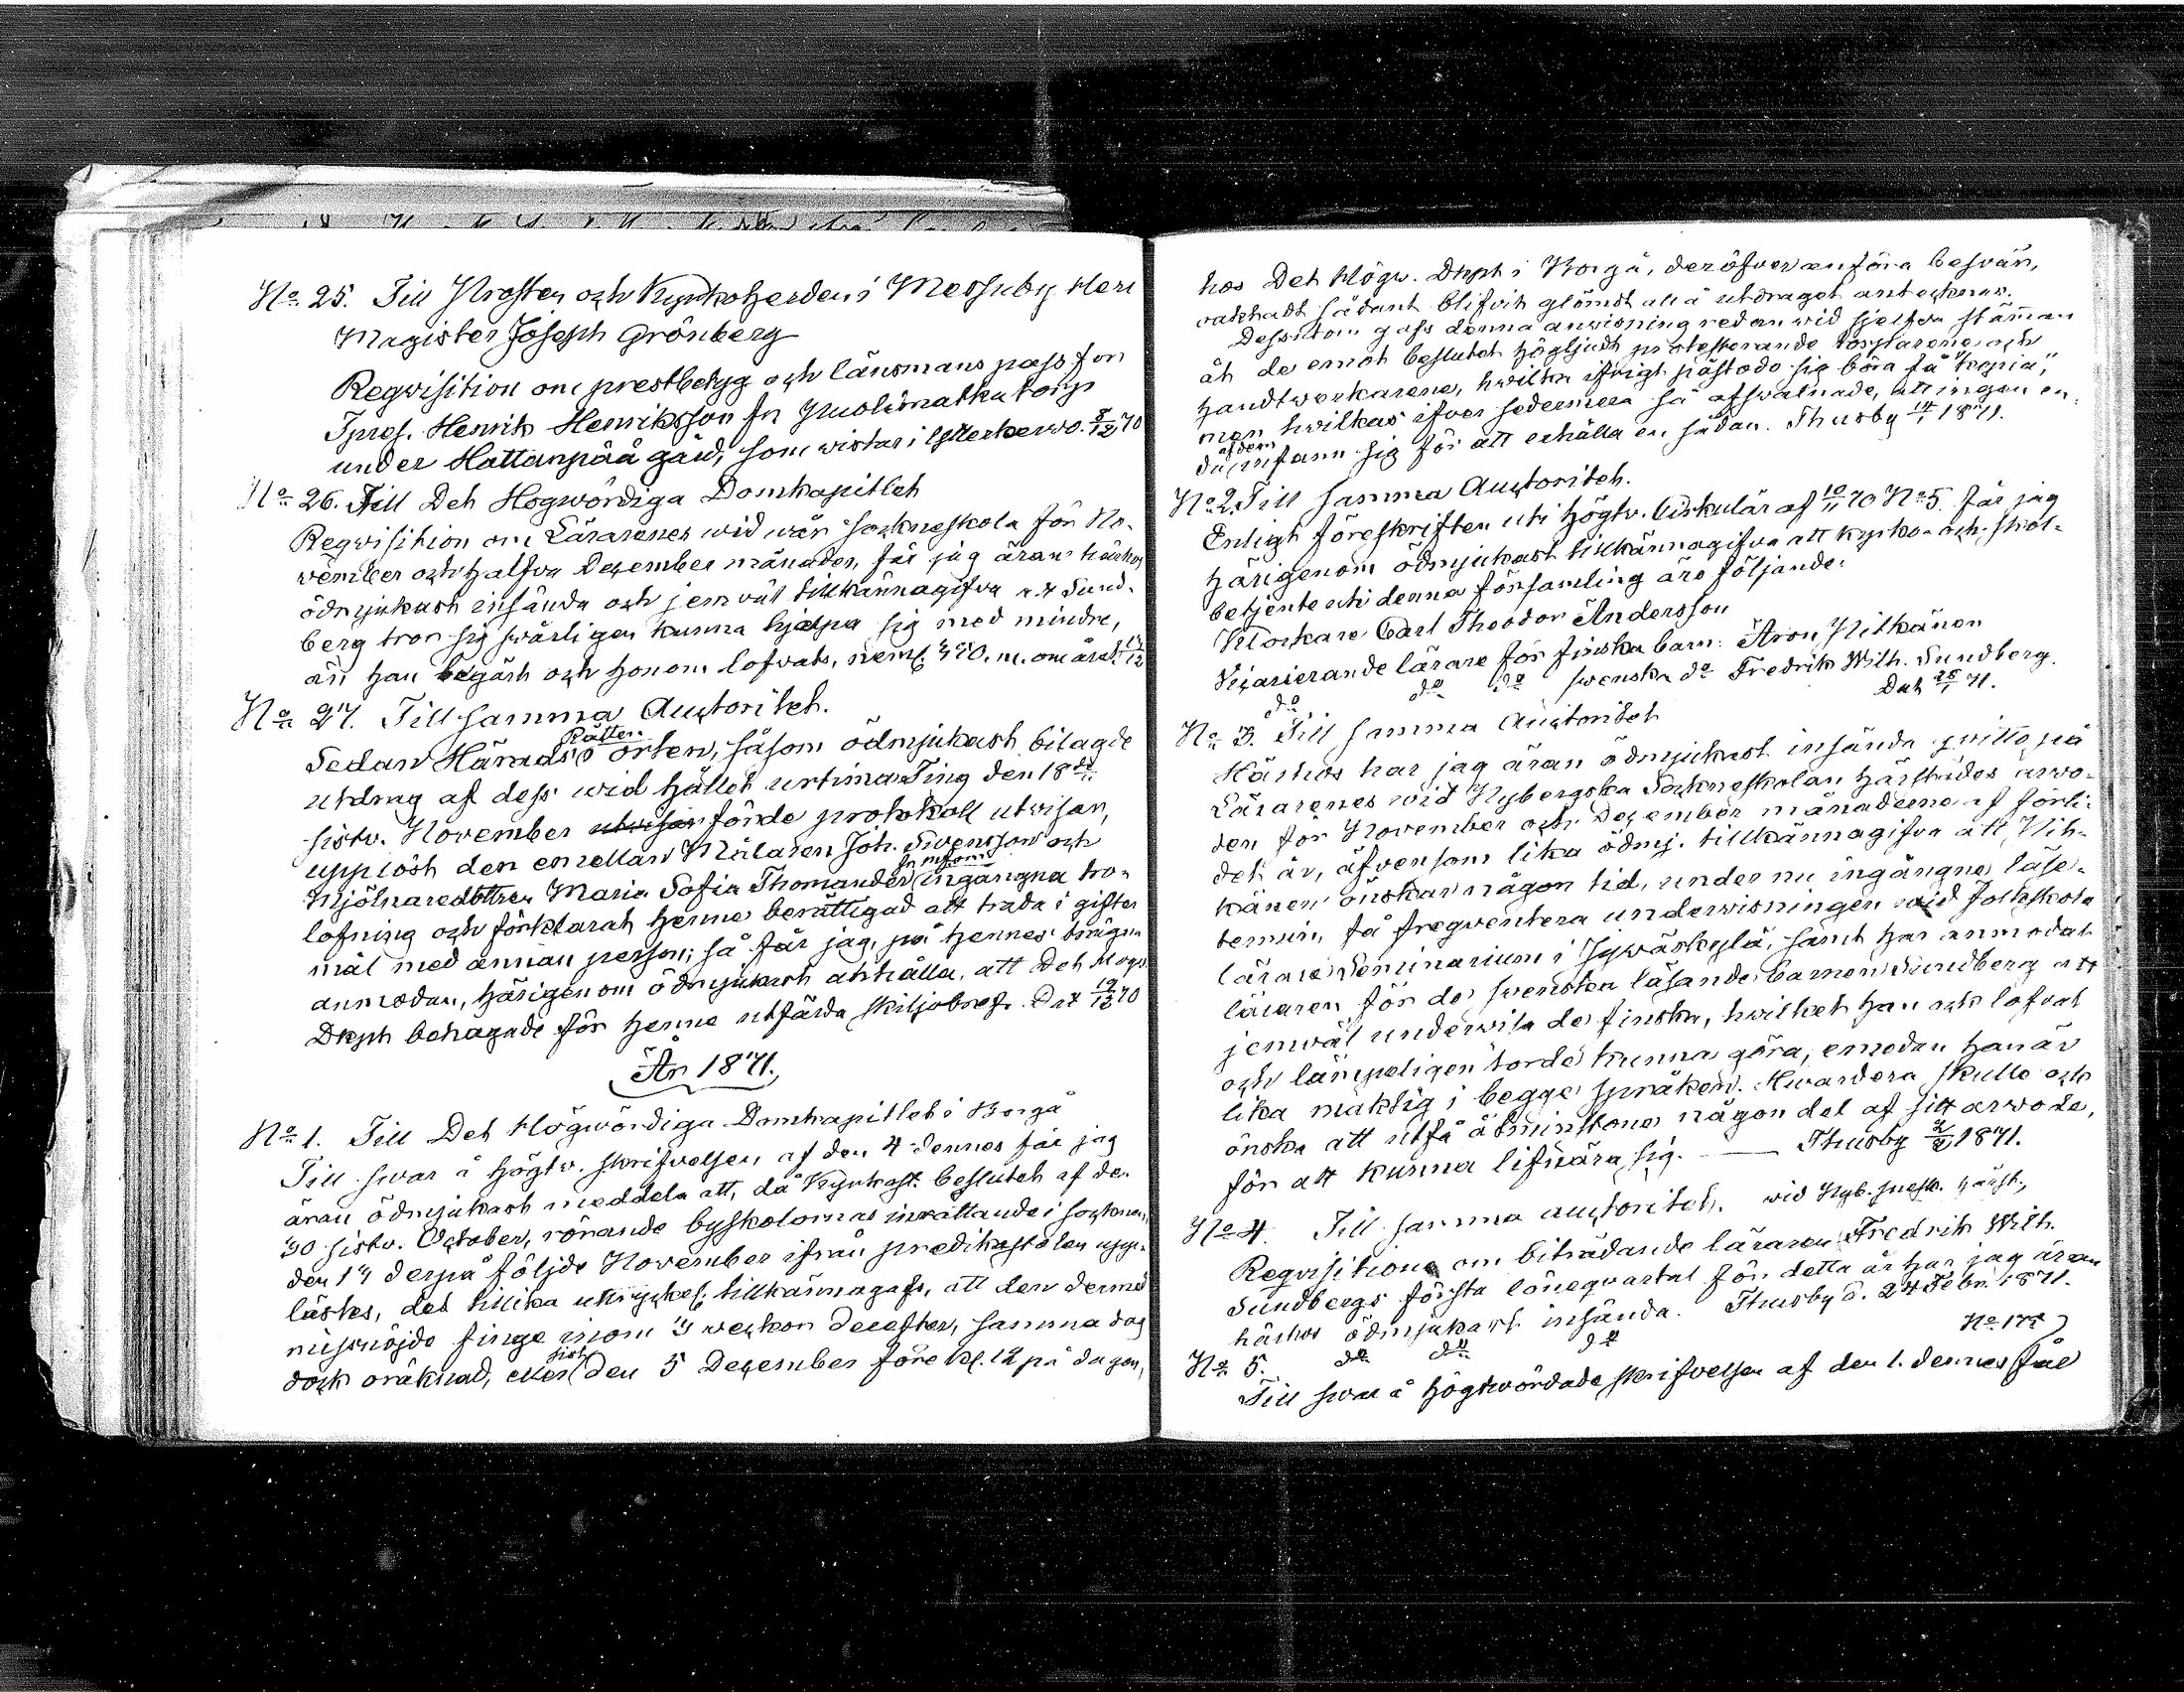 No 25. Till Prosten och Kyrkoherden i Messuby Herr
Magister Joseph Grönberg
Reqvisition om prestbetyg och länsmans pass för
Inhs. Henrik Henriksson fr. Puolimatka torp
under Hattanpää gård, som wistas i Ytterkerwo. 8/12 70
No 26. Till Det Högwördiga Domkapitlet
Reqvisition om Lärarenes wid wår sockneskola för No-
vember och halfva December månader, får jag äran härhos
ödmjukast insända och jemväl tillkännagifva att Sund-
berg tror sig swårligen kunna hjelpa sig med mindre,
än han begärt och honom lofvats, neml. 400. m. om året.
No 27. Till samma Auctoritet.
Rätten
Sedan Härads i orten, såsom ödmjukast bilagde
utdrag af dess wid hållet urtima Ting den 18de
sistw. November utwisar förde protokoll utwisar,
upplöst den emellan Målaren Joh. Swensson och
Mjölnaredottren Maria Sofia Thomander ingångna tro-
lofning och förklarat henne berättigad att träda i gifter
mål med annan person; så får jag, på hennes
anmodan, härigenom ödmjukast anhålla, att Det Högv.
Dkpt behagade för henne utfärda skiljobref. Dat 19/12 70
År 1871.
No 1. Till Det Högwördiga Domkapitlet i Borgå
Till swar å högtw. skrifvelsen af den 4 dennes får jag
äran ödmjukast meddela att, då Kyrkost. beslutet af den
30 sistw. October, rörande byskolornas inrättande i socknen,
den 13 derpå följde November ifrån predikstolen upp-
lästes, det tillika uttryckel. tillkännagafs, att den dermed
missnöjde finge inom 3 weckor derefter, samma dag
sist
dock oräknad, eller den 5 December före kl. 12 på dagen,
hos Det Högw. Dkpt i Borgå, deröfver anföra beswär,
ehuru sådant blifvit glömdt att å utdraget antecknas.
Dessutom gafs denna anwisning redan wid sjelfva stämman
åt de emot beslutet högljudt protesterande torparene och
handtwerkarene, hwilka ifrigt påstodo sig böra få "kopia",
men hwilkas ifver sedermera så afswalnade, att ingen en-
af dem
da infann sig för att erhålla en sådan. Thusby 14/1 1871.
No 2. Till samma Auctoritet.
Enligt föreskriften uti högtw. Cirkulär af 10/11 70 No 5. får jag
härigenom ödmjukast tillkännagifva att kyrko- och skol-
betjente uti denna församling äro följande:
Klockare Carl Theodor Andersson
Vicarierande lärare för finska barn: Aron Pitkänen
do do do swenska do Fredrik Wilh. Sundberg.
Dat 25/1 71.
No 3. Till samma Auctoritet
Härhos har jag äran ödmjukast insända qvitto på
Lärarenes wid Nybergska Sockneskolan härstädes arwo-
den för November och December månaderne af förli-
det år, äfvensom lika ödmj. tillkännagifva att Pit-
känen önskar någon tid, under nu ingångne läse-
termin, få freqventera underwisningen wid folkskole
lärare Seminarium i Jyväskylä, samt har anmodat
läraren för de swenska läsande barnen Sundberg att
jemväl underwisa de finska, hwilket han ock lofvat
och lämpeligen torde kunna göra, emedan han är
lika mäktig i begge språken. Hwardera skulle ock
önska att utfå åtminstone någon del af sitt arwode,
för att kunna lifnära sig. — Thusby 1871.
No 4. Till samma auctoritet. wid Nyb.
Reqvisitione om biträdande läraren Fredrik Wilh.
Sundbergs första löneqvartal för detta år har jag äran
härhos ödmjukast insända. Thusby d. 24 Febr. 1871.
No 5. do do do
No 175
Till swar å högtwördade skrifvelsen af den 1. dennes får